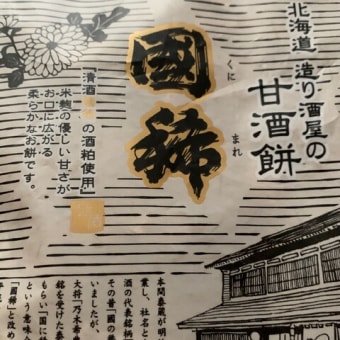 北海道 造り酒屋の
甘酒餅
國稀
くに
まれ
「清酒國稀の酒粕使用」
米麹の優しい甘さが
お口に広がる
柔らかなお餅です。
本間泰蔵が明
業し、社名と
酒の代表銘柄
その昔「國の誉
いましたが、
大将「乃木希典
銘を受けた泰
もらい「国に稀
という意味合
「國稀」と改め